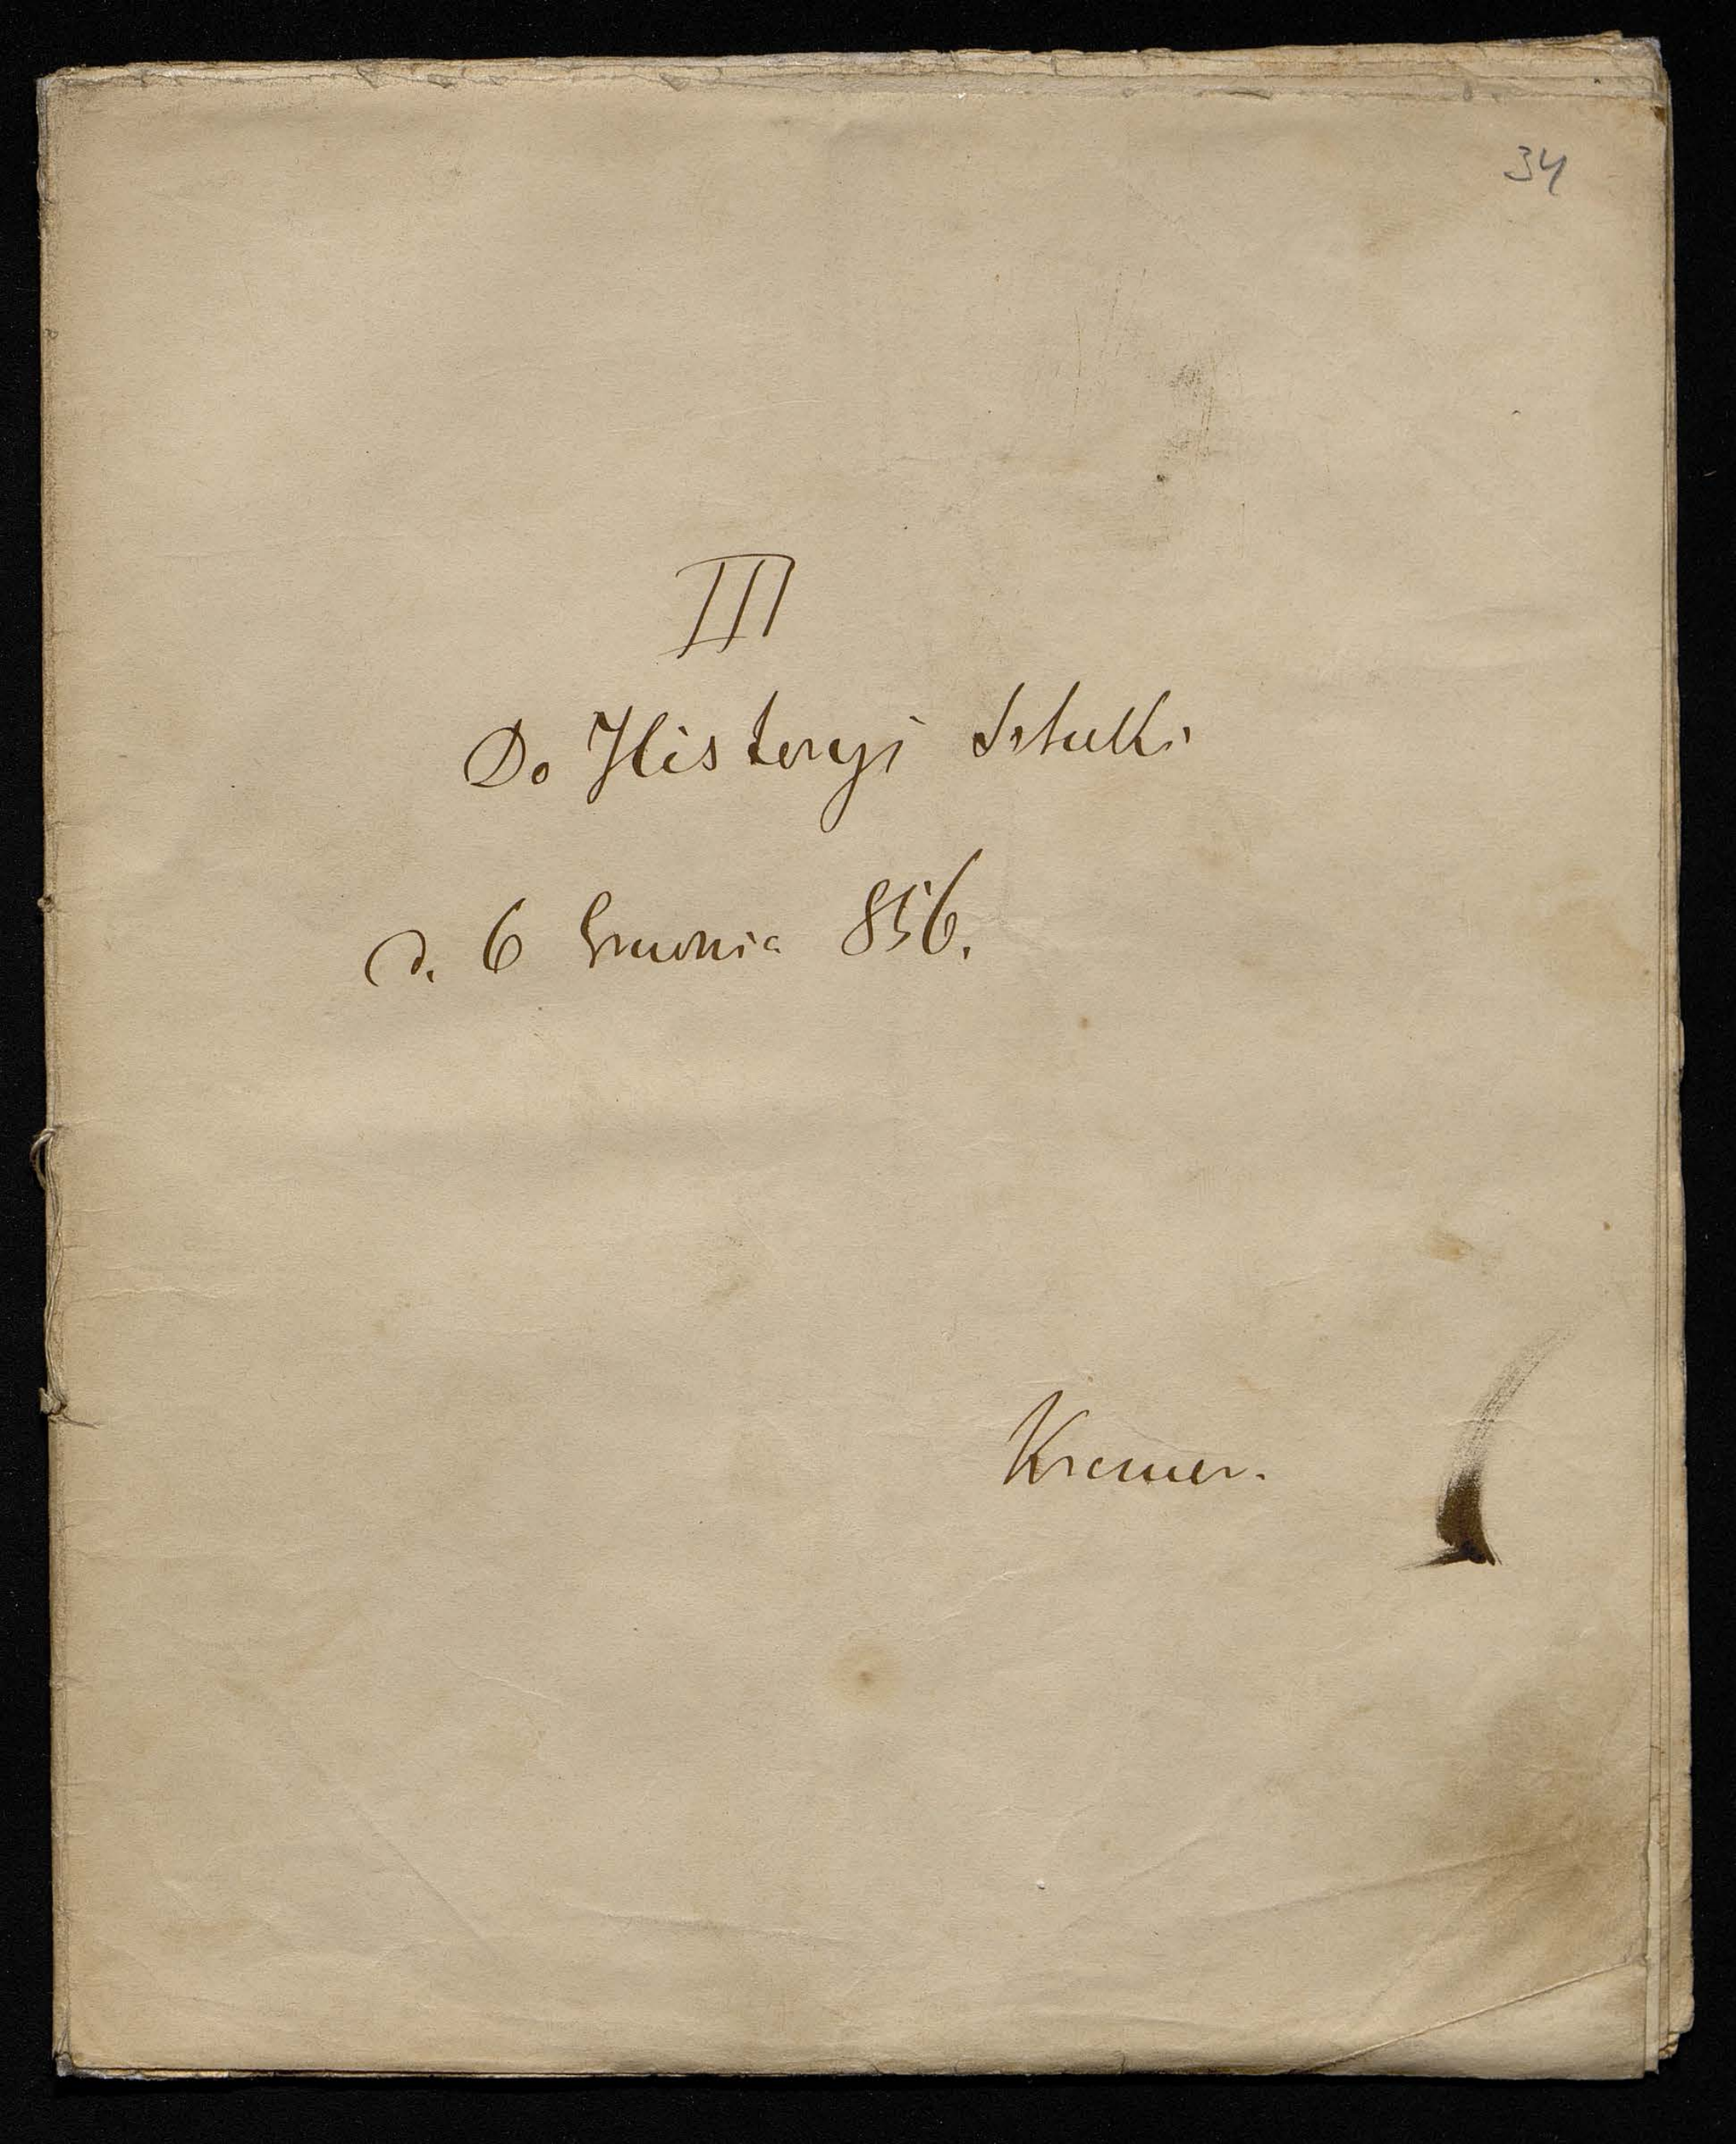 34
III
Do Historyi Sztuki
d. 6 Grudnia 856.
Kremer.